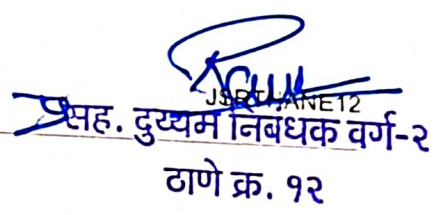 JSRTHANE12
प्रसह. दुय्यम निबंधक वर्ग-२
ठाणे क्र. १२